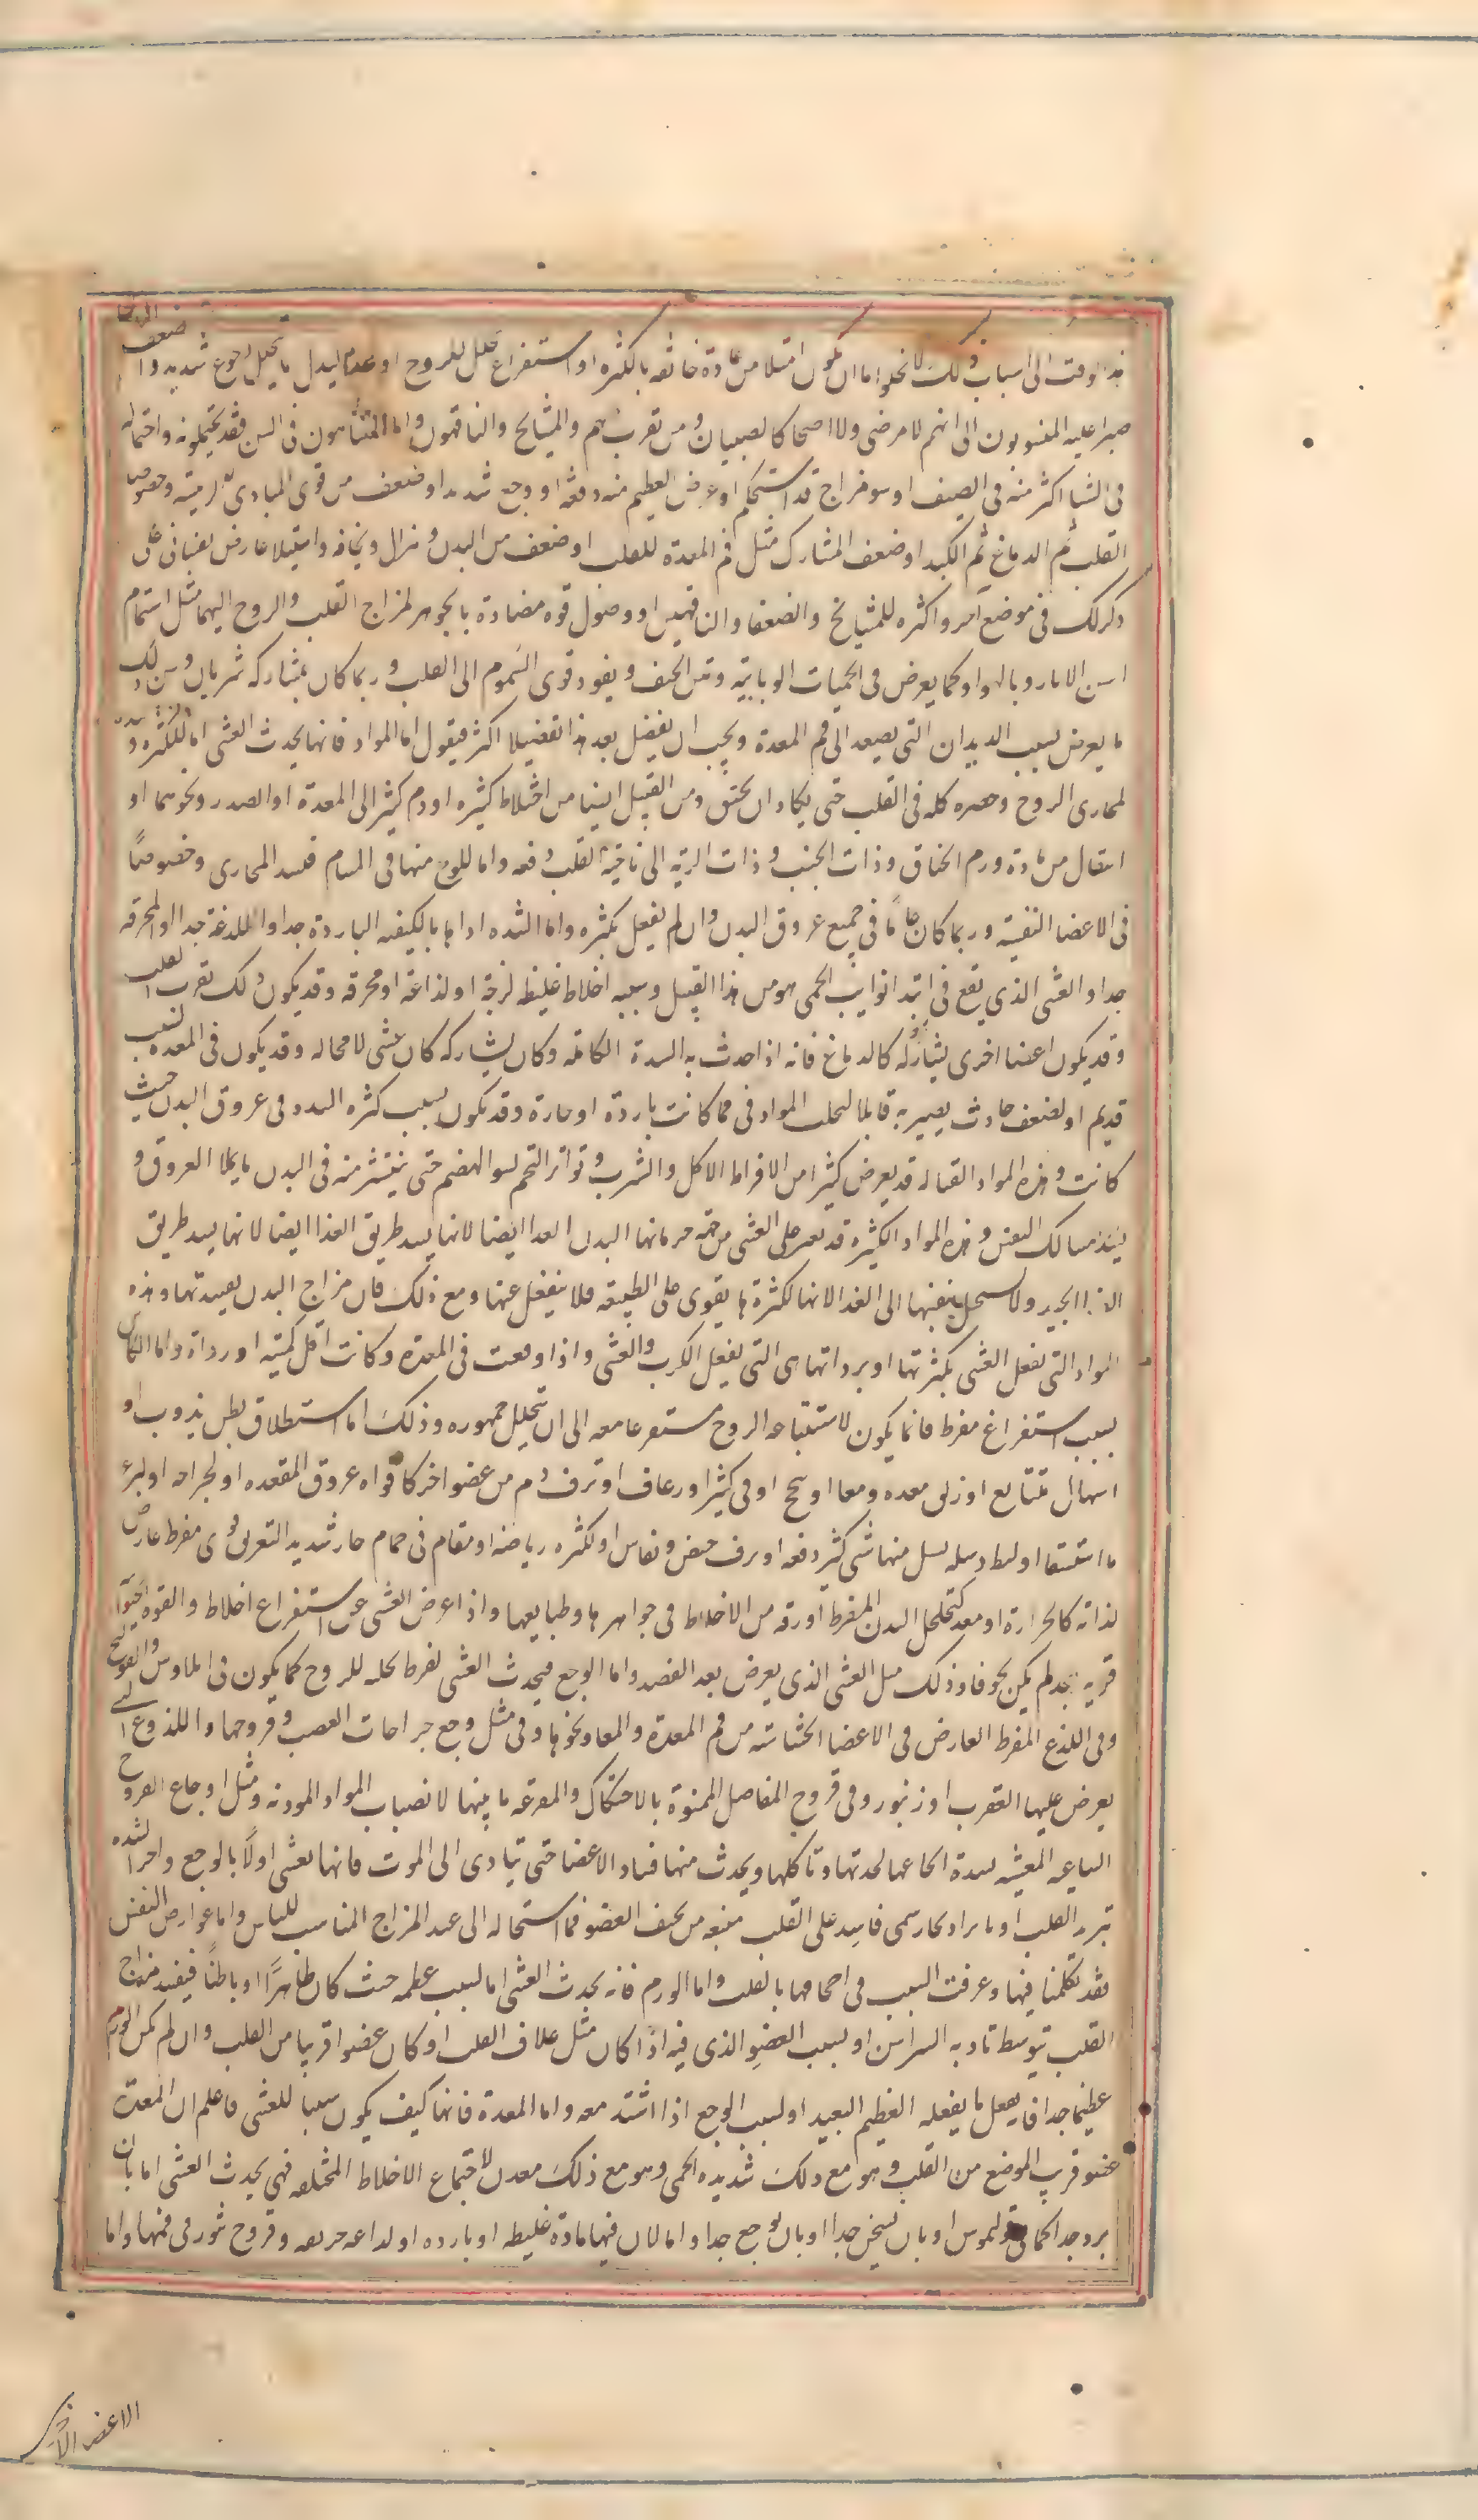 هذا وقت الى اسباب ذلك لا يخلو اما ان يكون امتلا من مادة خانقه بالكثره او استفراغ محلل للروح او عدم لبدل ما يتحلل لجوع شديد وا ضعف
صبرا عليه المنسوبون الى انهم لا مرضى ولا اصحا كالصبيان ومن تقرب بهم والمشايخ والناقهون واما المتناهون فى السن فقد يحتملونه واحتماله
فى الشتا اكثر منه فى الصيف او سو مزاج قد استحكم او عرض العظيم منه دفعه او وجع شديد او ضعف من قوى المبادى الرئيسه وخصوصا
القلب ثم الدماغ ثم الكبد او ضعف المشارك مثل فم المعدة للقلب او ضعف من البدن وهزال ونحافه واستيلا عارض نفسانى على
ذكر لك فى موضع اخر واكثره للمشايخ والضعفا والناقهين او وصول قوه مضادة بالجوهر لمزاج القلب والروح اليهما مثل اشتمام
اسن الابار وبا الهوا وكما يعرض فى الحميات الوبائيه ونتن الجيف ونفوذ قوى السموم الى القلب وربما كان بمشاركه شريان ومن ذلك
ما يعرض بسبب الديدان التى يصعد الى فم المعدة ويجب ان نفصل بعد هذا تفصيلا اكثر فنقول اما المواد فانها يحدث الغشى اما للكثره
لمجارى الروح وحصره كله فى القلب حتى يكاد ان يختنق ومن القبيل ايضا من اختلاط كثيره او دم كثير الى المعدة او الصدر ونحوهما او
انتقال من مادة ورم الخناق وذات الجنب وذات الريه الى ناحية القلب دفعه واما للوج منها فى المسام فسد المجارى وخصوصاً
فى الاعضا النفسيه وربما كان عاماً فى جميع عروق البدن وان لم يفعل بكثره واما الشده اذاها بالكيفيه الباردة جدا واللاذغه جدا والمحرقه
جدا والغشى الذى يقع فى ابتدا نوايب الحمى هو من هذا القبيل وسببه اخلاط غليظه لزجة او لذاعه او محرقه وقد يكون ذلك بقرب القلب
وقد يكون اعضا اخرى يشاركه كالدماغ فانه اذا حدث به السدة الكامله وكان يشاركه كان غشى لا محاله وقد يكون فى المعده لسبب
قديم او لضعف حادث يصير به قابلا لتحلب المواد فى فمها كانت باردة او حارة وقد يكون بسبب كثره السدد فى عروق البدن حيث
كانت وهذه المواد القتاله قد يعرض كثيرا من الافراط الاكل والشرب وتواتر التخم لسو الهضم حتى ينتشر منه فى البدن ما يملا العروق و
يسد مسالك النفس وهذه المواد الكثيره قد تعين على الغشى من جهه حرمانها البدن الغذا ايضا لانها يسد طريق الغذا ايضا لانها يسد طريق
الغذا الجيد ولا يستحيل بنفسها الى الغذا لانها لكثرة ما يقوى على الطبيعه فلا ينفعل عنها ومع ذلك فان مزاج البدن يفسد بها وهذه
المواد التى تفعل الغشى بكثرتها او برداتها هى التى تفعل الكرب والغشى واذا وقعت فى المعده وكانت اقل كميه او رداة واما الكائن
بسبب استفراغ مفرط فانما يكون لاستتباعه الروح مستفرغا معه الى ان يتحلل جمهوره وذلك اما استطلاق بطن بذوب او
اسهال متتابع او زلق معده ومعا او سحج او قى كثير او رعاف او نزف دم من عضو اخر كافواه عروق المقعده او لجراحه او لبزء
ما استسقا او لبط دبيله لسيل منها شى كثير دفعه او نزف حيض ونفاس او لكثره رياضه او مقام فى حمام حار شديد التعريق مفرط عارض
لذاته كالحرارة او معد لتخلخل البدن المفرط او رقه من الاخلاط فى جواهرها وطبايعها واذا عرض الغشى عن استفراغ اخلاط والقوة
قويه بعد لم يكن مخوفا وذلك مثل الغشى الذى يعرض بعد الفصد واما الوجع فيحدث الغشى لفرط تحليله للروح كما يكون فى ايلاوس والقولنج
وفى اللذع المفرط العارض فى الاعضا الحساسه من فم المعدة والمعا ونحوها وفى مثل وجع جراحات العصب وقروحها واللذوع التى
يعرض عليها العقرب او زنبور وفى قروح المفاصل الممنوة بالاحتكاك والمقرحه ما بينها لانصباب المواد الموذيه ومثل اوجاع القروح
الساعيه المغشيه لشدة ايجاعها لحدتها وتاكلها ويحدث منها فساد الاعضا حتى يتادى الى الموت فانها تغشى اولاً بالوجع واخرا لشده
تبرد القلب او بايراد بخار سمى فاسد على القلب منبعه من نتن العضو فما استحاله الى ضد المزاج المناسب للناس واما عوارض النفس
فقد تكلمنا فيها وعرفت السبب فى اجحافها بالقلب واما الورم فانه يحدث الغشى اما لسبب عظمه حيث كان ظاهرًا او باطنًا فيفسد مزاج
القلب بتوسط تاديه الشرايين او لسبب العضو الذى فيه اذا كان مثل غلاف القلب او كان عضوا قريبا من القلب وان لم يكن الورم
عظيما جدا فانه يفعل ما يفعله العظيم البعيد او لسبب الوجع اذا اشتد معه واما المعدة فانها كيف يكون سببا للغشى فاعلم ان المعدة
عضو قريب الموضع من القلب وهو مع ذلك شديدة الحس وهو مع ذلك معدن لاجتماع الاخلاط المختلفه فهى يحدث الغشى اما بان
برد جدا كما فى بوليموس او بان يسخن جدا او بان يوجع جدا واما لان فيها مادة غليظه او بارده او لذاعه حريفه وقروح بثور فى فمها واما
الاعضا الاخر